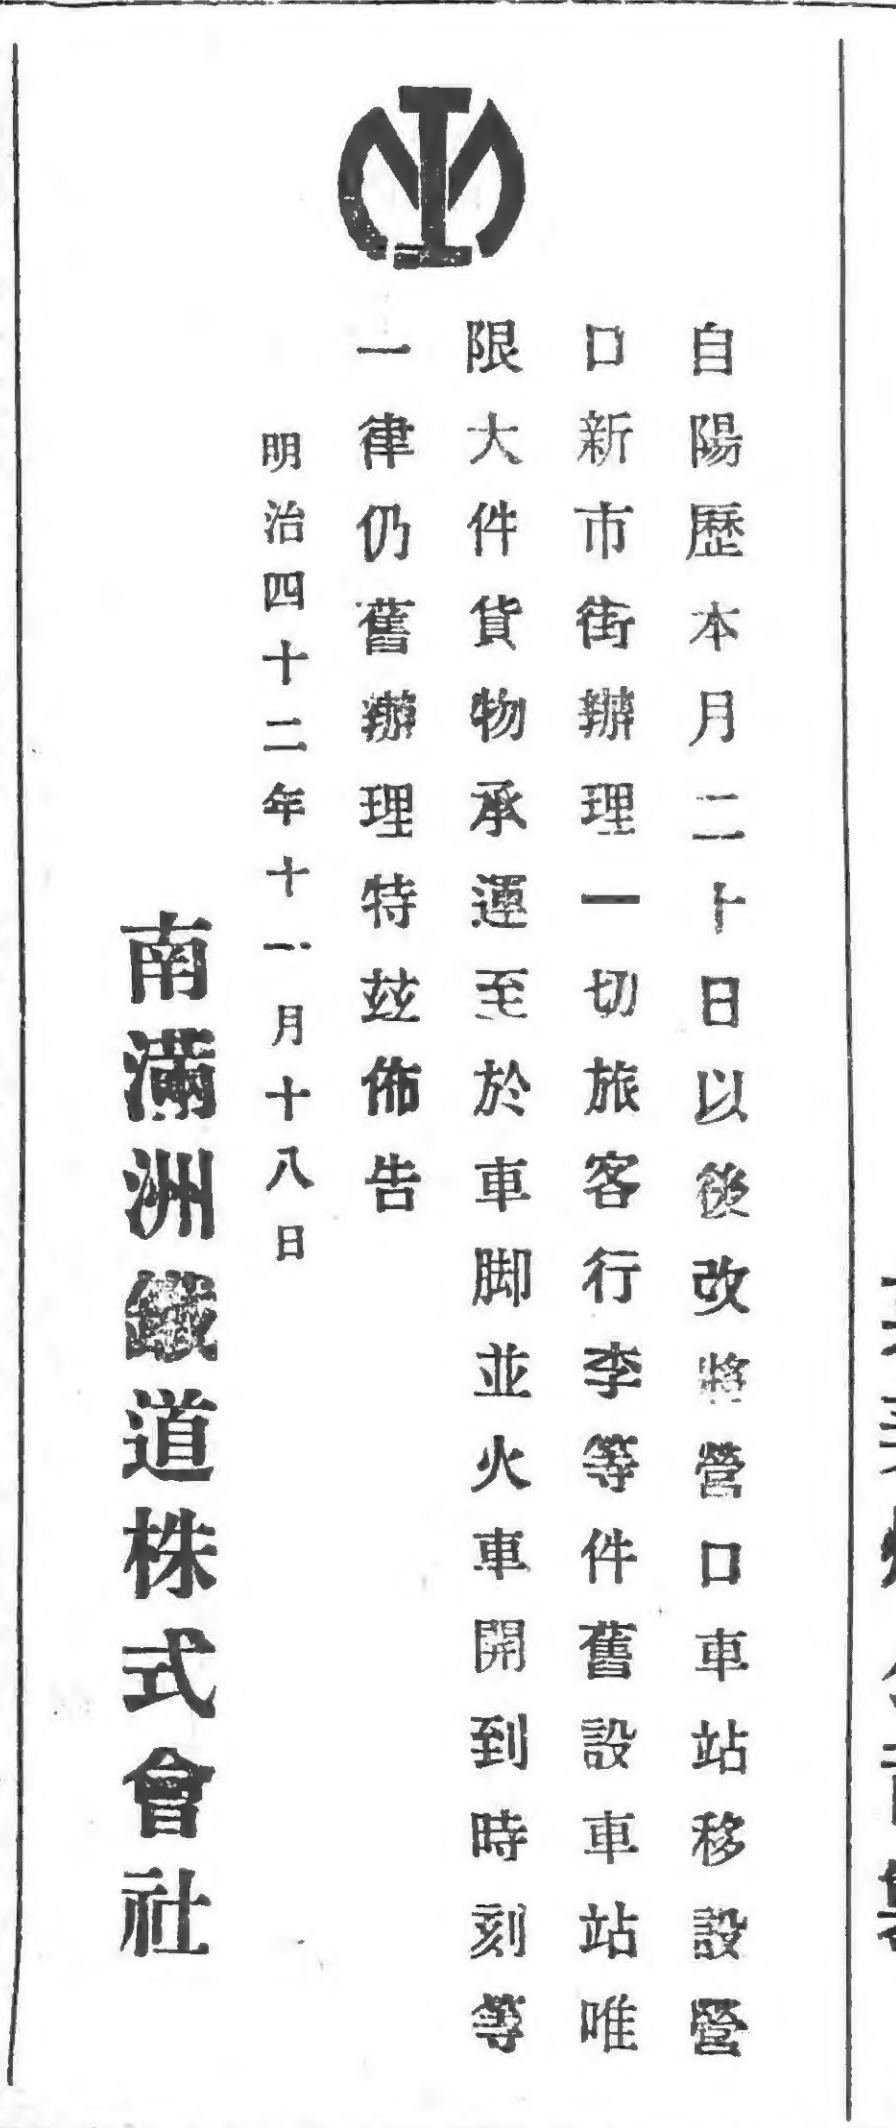 自陽歷本月二十日以後改將營口車站移設營
口新市街辦理一切旅客行李等件舊設車站唯
限大件貨物承運至於車脚並火車開到時刻等
一律仍舊辦理特玆佈告
明治四十二年十一月十八日
南滿洲鐵道株式會社